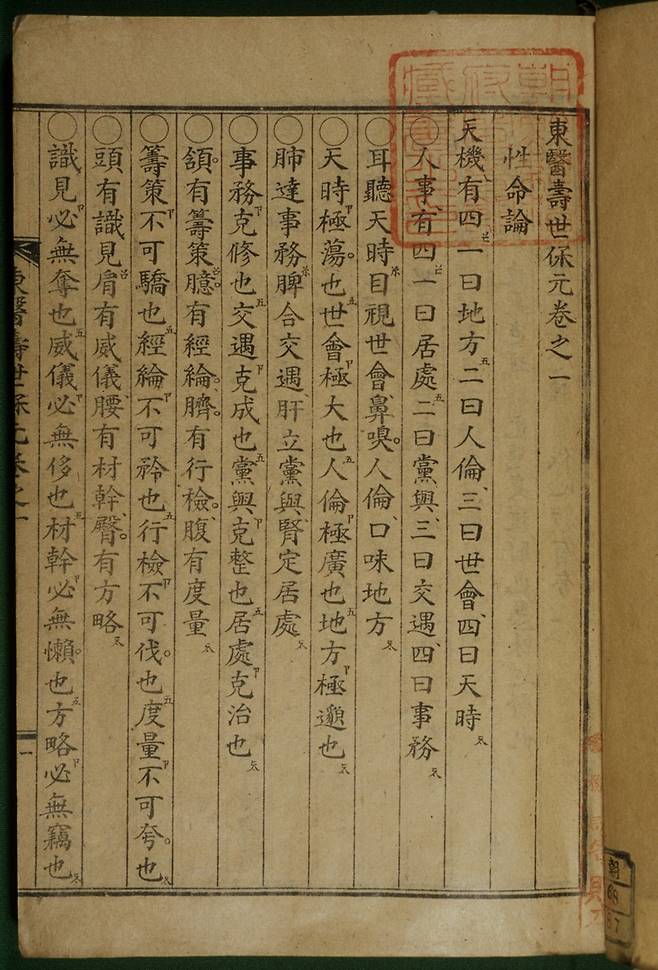 東醫壽世保元卷之一
性命論
天機有四一曰地方二曰人倫三曰世會四曰天時
○人事有四一曰居處二曰黨與三曰交遇四曰事務
○耳聽天時目視世會鼻嗅人倫口味地方
○天時極蕩也世會極大也人倫極廣也地方極邈也
○肺達事務脾合交遇肝立黨與腎定居處
○事務克修也交遇克成也黨與克整也居處克治也
○頷有籌策臆有經綸臍有行檢腹有度量
○籌策不可驕也經綸不可矜也行檢不可伐也度量不可夸也
○頭有識見肩有威儀腰有材幹臀有方略
○識見必無奪也威儀必無侈也材幹必無懶也方略必無竊也
東醫壽世保元卷之一
一
朝